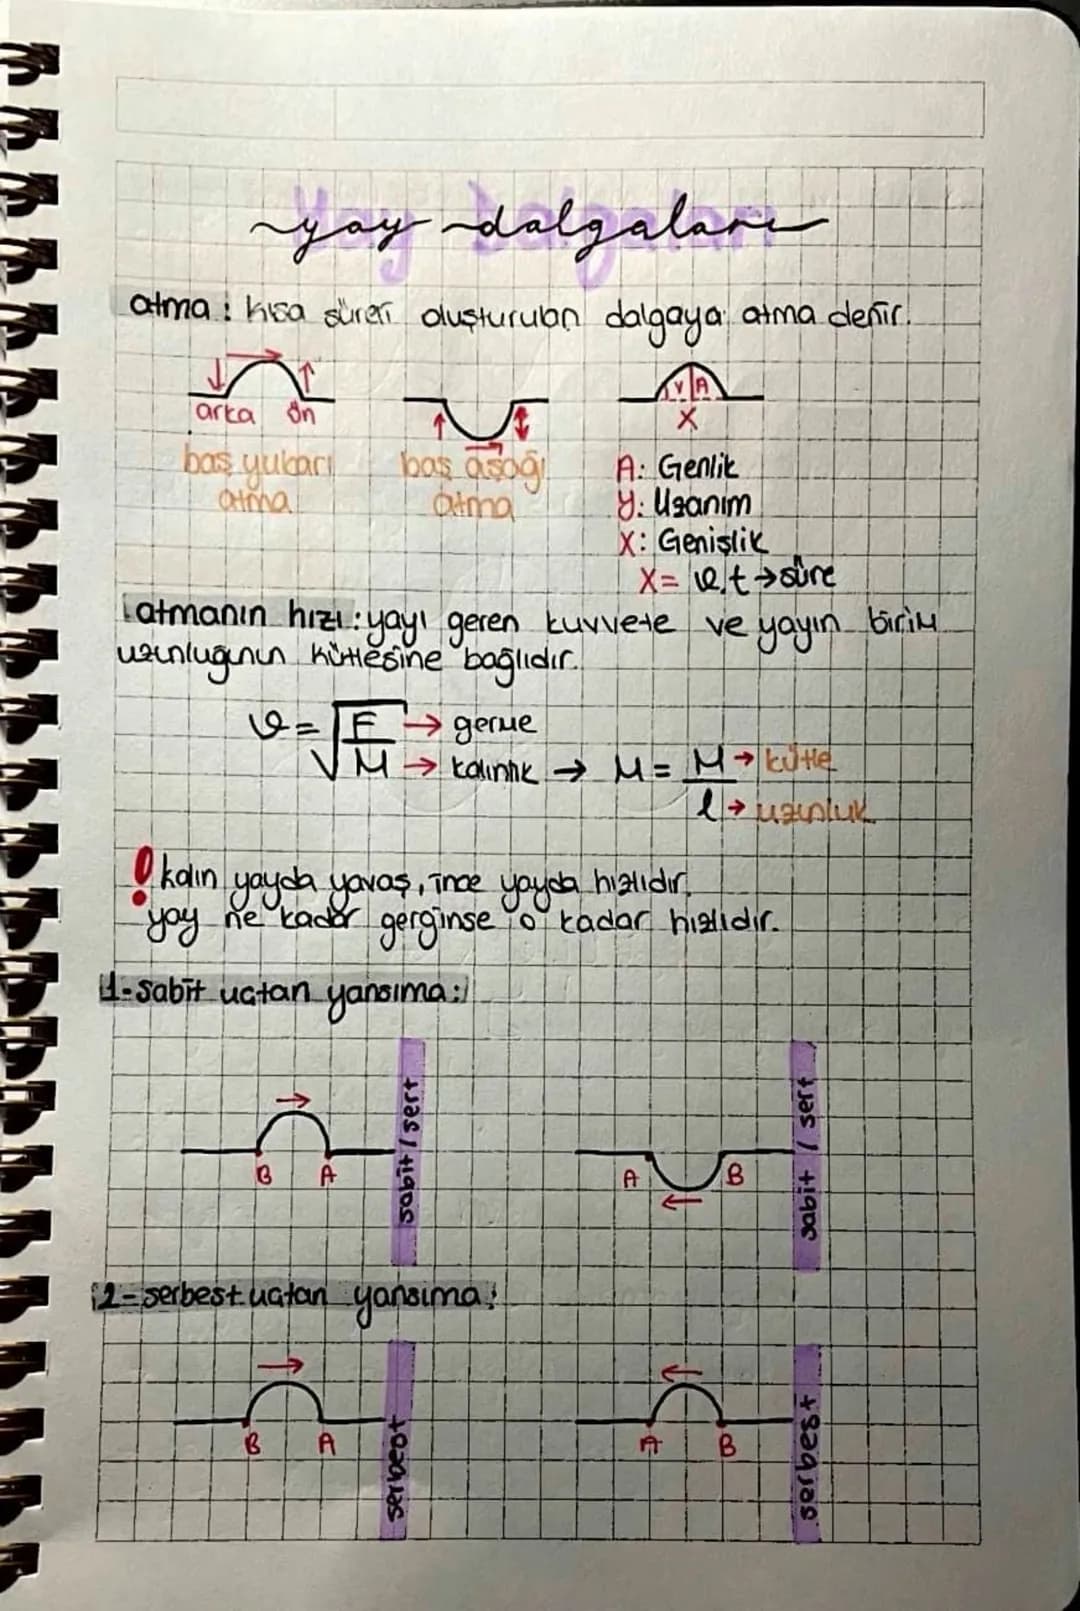 yay dalgaları
atma : kısa süreli oluşturulan dalgaya atma denir.
arka ön
y A
X
baş yukarı atma
baş aşağı atma
A: Genlik
y: Uzanım
X: Genişlik
X= v.t → süre
atmanın hızı : yayı geren kuvvete ve yayın birim
uzunluğunun kütlesine bağlıdır.
v = √F/M
→ germe
→ kalınlık → M = M/l
→ kütle
→ uzunluk
! kalın yayda yavaş, ince yayda hızlıdır.
yay ne kadar gerginse o kadar hızlıdır.
1-sabit uçtan yansıma:
B A sabit / sert
A B sabit / sert
2-serbest uçtan yansıma:
B A serbest
A B serbest